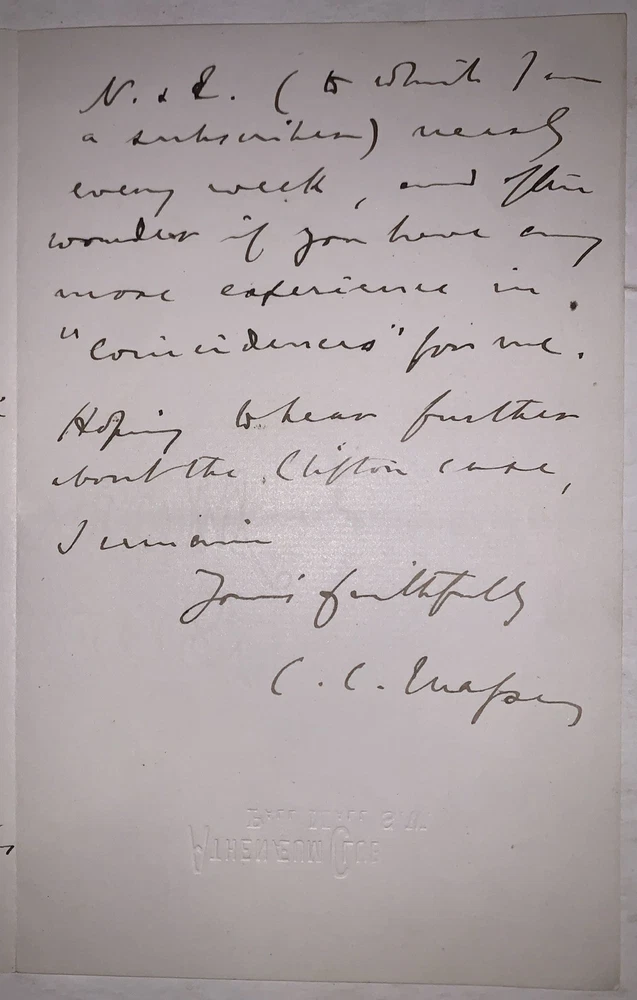 N. & Q. (to which I am
a subscriber) nearly
every week, and often
wonder if you have any
more experience in
"coincidences" for me.
Hoping to hear further
about the Clifton case,
I remain
Yours faithfully
C. C. Massey
PALL MALL S.W.
ATHENÆUM CLUB